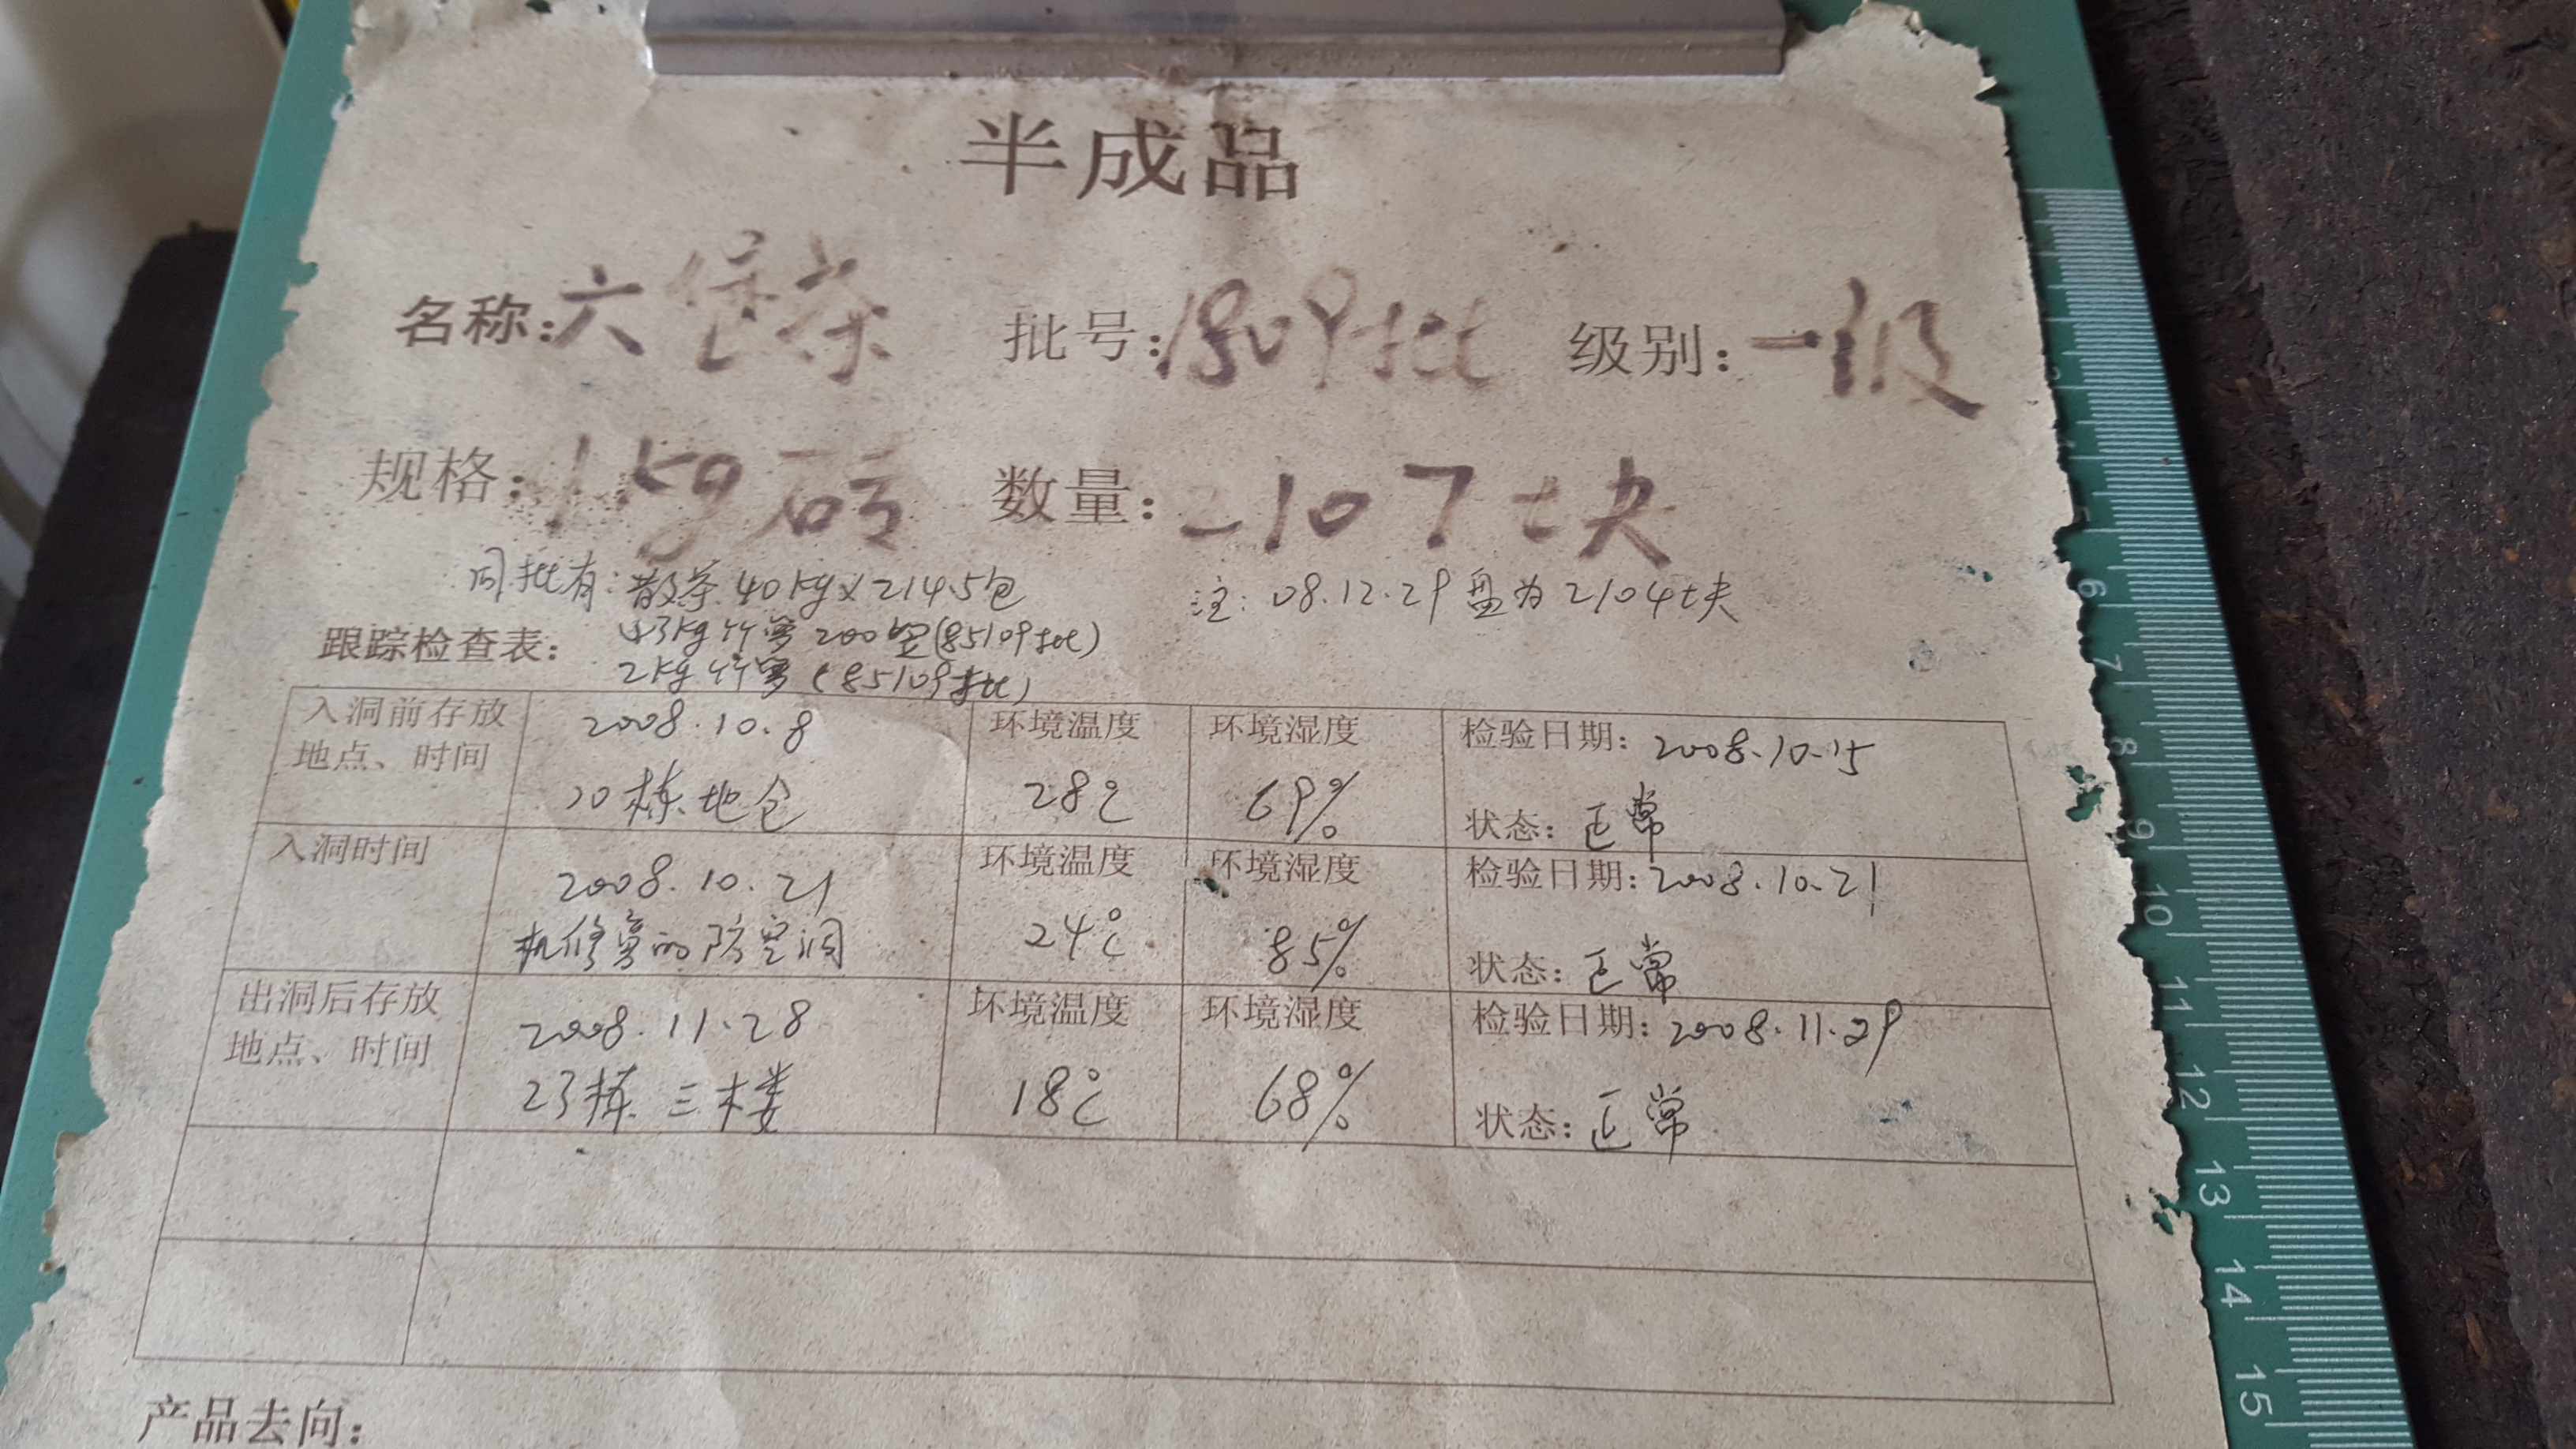 半成品
名称:六堡茶 批号:1809批 级别:一级
规格:1kg砖 数量:2107块
同批有:散茶40kg×2145包 注:08.12.29盘为2104块
跟踪检查表: 43kg竹箩200 (85109批)
2kg竹箩(85109批)
入洞前存放 2008.10.8 环境温度 环境湿度 检验日期:2008.10.15
地点、时间 20栋地仓 28℃ 69% 状态:正常
入洞时间 2008.10.21 环境温度 环境湿度 检验日期:2008.10.21
机修旁的防空洞 24℃ 85% 状态:正常
出洞后存放 2008.11.28 环境温度 环境湿度 检验日期:2008.11.29
地点、时间 23栋三楼 18℃ 68% 状态:正常
产品去向:
6
7
8
9
10
11
12
13
14
15